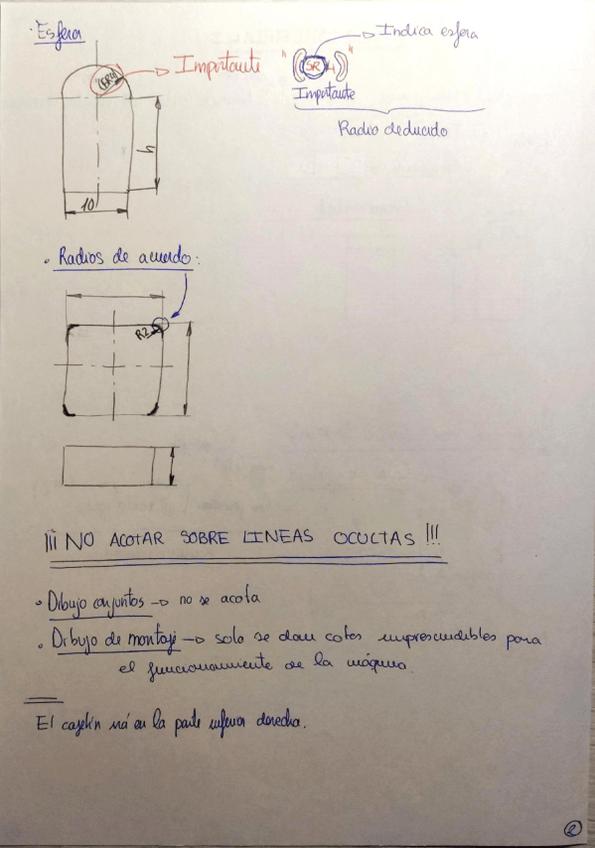 · Esfera
"(SR4)" → Importante "(SR4)" → Indica esfera
Importante
Radio deducido
h
10
• Radios de acuerdo:
R2
¡¡¡ NO ACOTAR SOBRE LINEAS OCULTAS !!!
• Dibujo conjuntos → no se acota
• Dibujo de montaje → solo se dan cotas imprescindibles para
el funcionamiento de la máquina.
El cajetín irá en la parte inferior derecha.
2